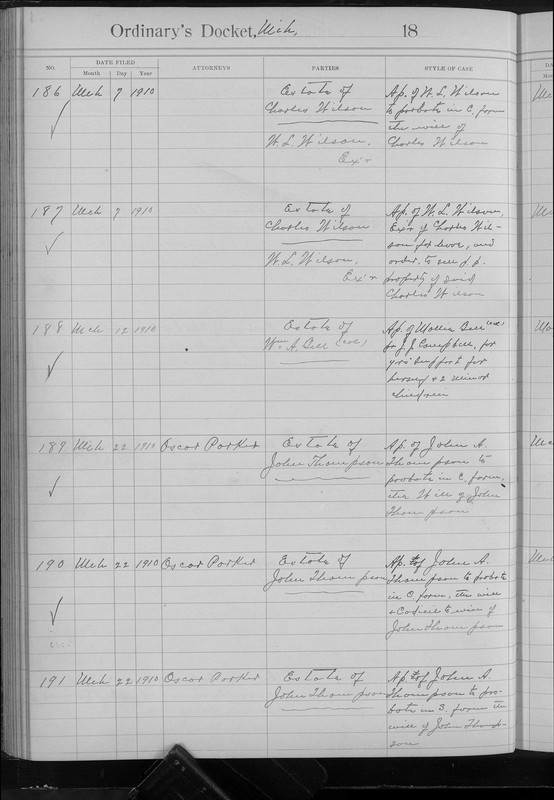 Ordinary's Docket, Mch, 18
NO. DATE FILED ATTORNEYS PARTIES STYLE OF CASE
Month Day Year
186 Mch 7 1910 Estate of Ap. of W. L. Wilson
Charles Wilson to probate in C. form
the will of
W. L. Wilson, Charles Wilson
Ex'r
187 Mch 7 1910 Estate of Ap. of W. L. Wilson,
Charles Wilson Ex'r of Charles Wil-
son for leave, and
W. L. Wilson, order to sell p. p.
Ex'r property of said
Charles Wilson
188 Mch 12 1910 Estate of Ap. of Mollie Bell (col)
Wm. A. Bell (col) for J. J. Campbell, for
yrs support for
herself & 2 minor
children
189 Mch 22 1910 Oscar Parker Estate of Ap. of John A.
John Thompson Thompson to
probate in C. form,
the Will of John
Thompson
190 Mch 22 1910 Oscar Parker Estate of Ap. of John A.
John Thompson Thompson to probate
in C. form, the will
& Codicil to will of
John Thompson
191 Mch 22 1910 Oscar Parker Estate of Ap. of John A.
John Thompson Thompson to pro-
bate in S. form the
will of John Thomp-
son